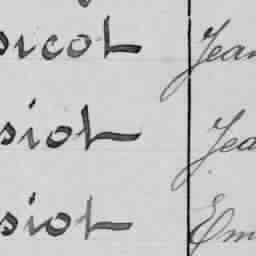 sicot Jean
siot Jea
siot Em